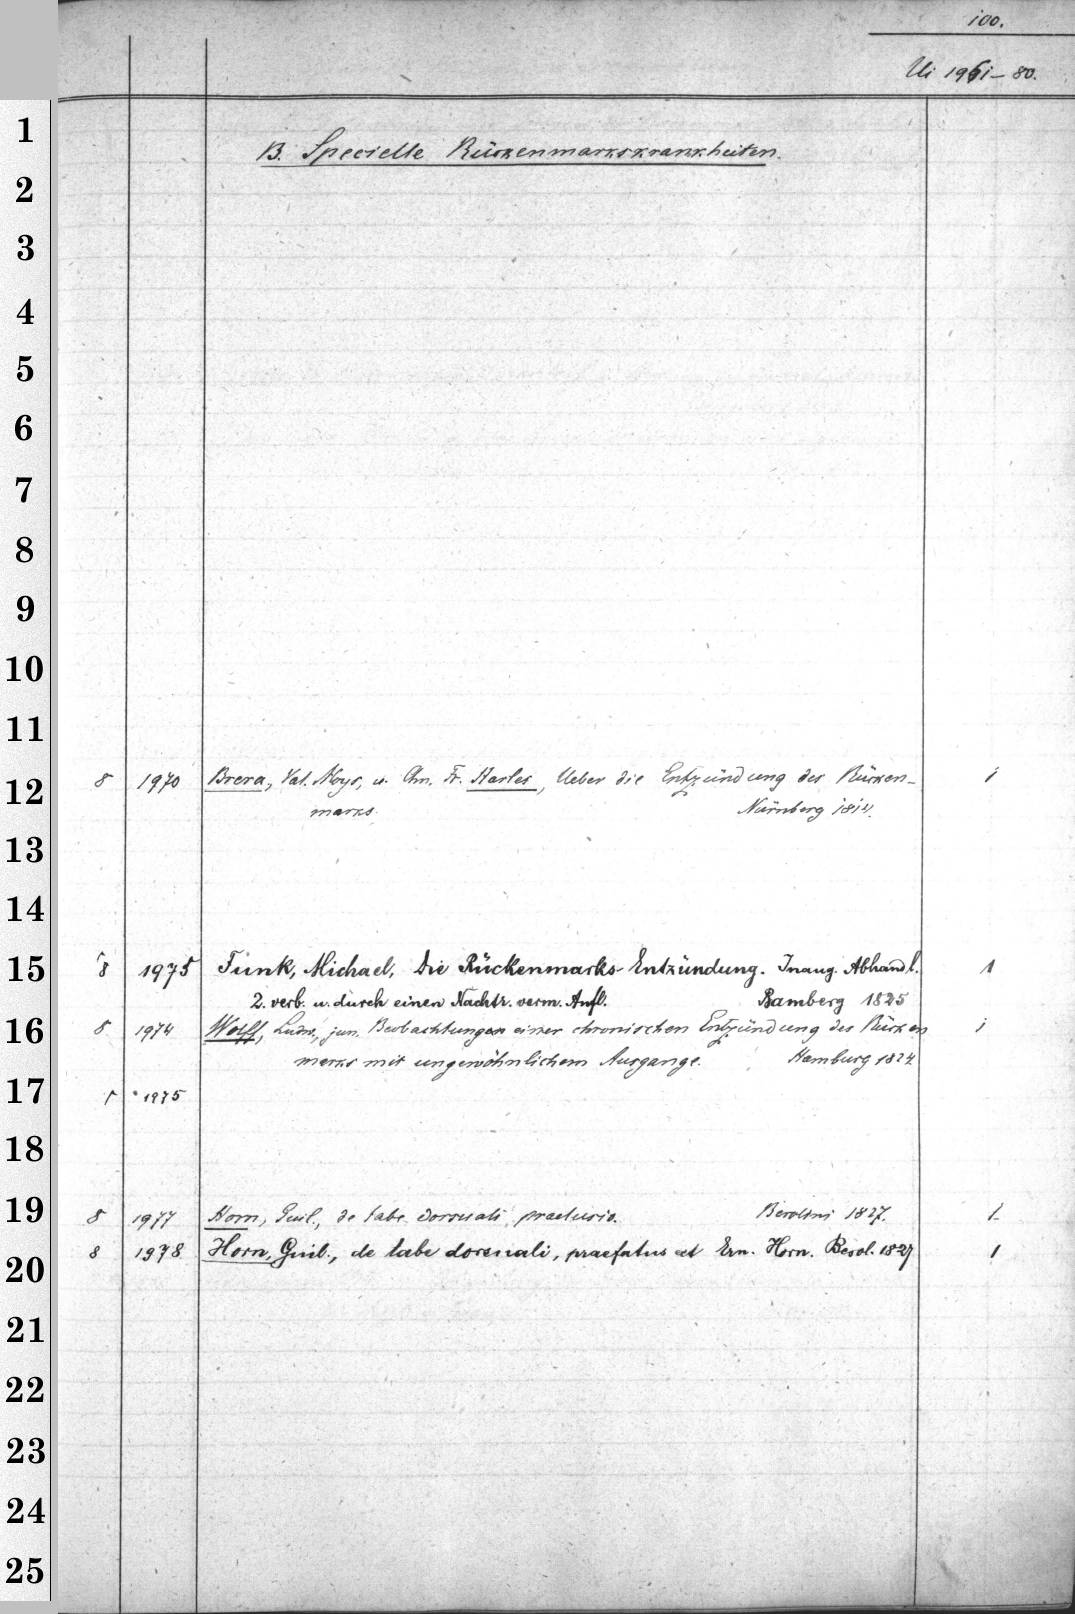 100.
Ui 1961-80.
1
B. Specielle Rückenmarkskrankheiten.
2
3
4
5
6
7
8
9
10
11
12
8 1970 Brera, Val. Aloys, u. Chn. Fr. Harles, Ueber die Entzündung des Rücken- 1
marks. Nürnberg 1814.
13
14
15
8 1975 Funk, Michael, Die Rückenmarks-Entzündung. Inaug. Abhandl. 1
2. verb. u. durch einen Nachtr. verm. Aufl. Bamberg 1825
16
8 1974 Wolff, Ludw., jun. Beobachtungen einer chronischen Entzündung des Rücken 1
marks mit ungewöhnlichem Ausgange. Hamburg 1824
17
1975
18
19
8 1977 Horn, Guil., de tabe dorsuali praelusio. Berolini 1827. 1
20
8 1978 Horn, Guil., de tabe dorsuali, praefatus est Ern. Horn. Berol. 1827 1
21
22
23
24
25